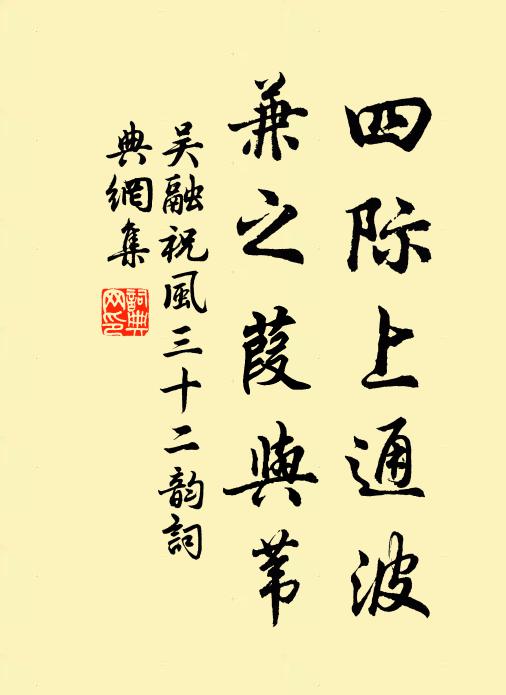 四际上通波
兼之葭與苇
吴融祝風三十二韵詞
典網集
詞典網印